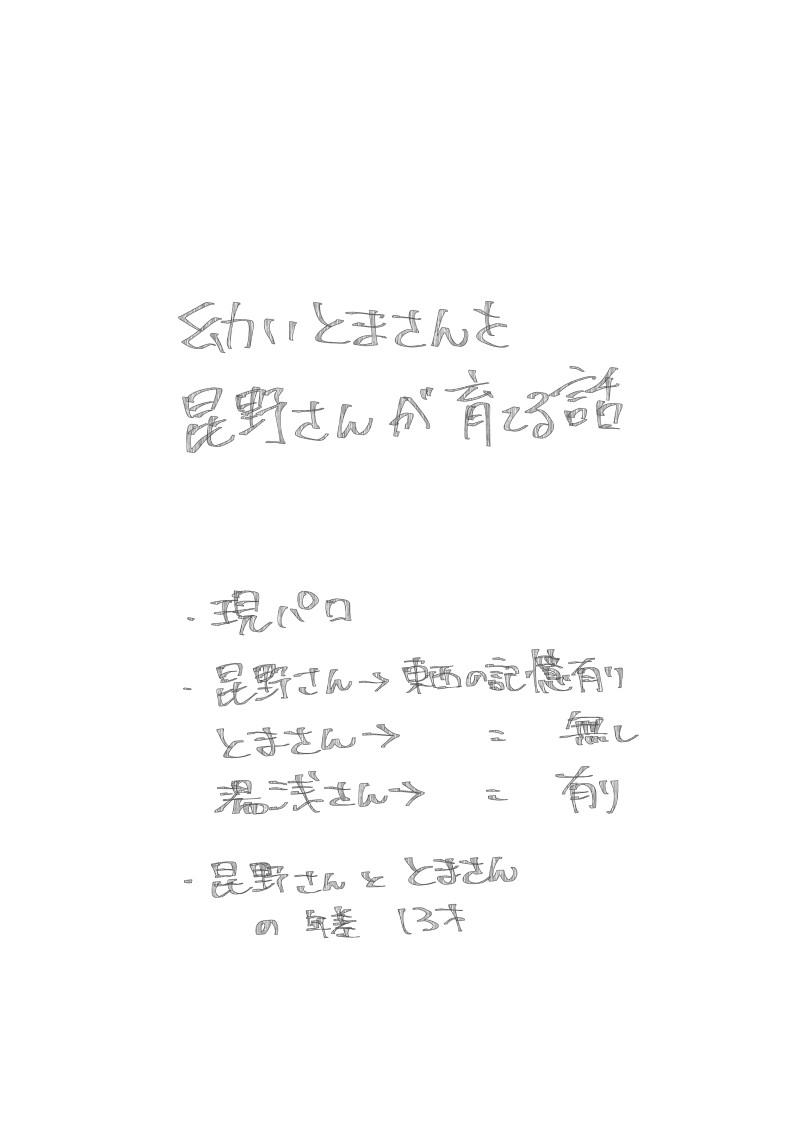 幼いとまさんを
昆野さんが育てる話
・現パロ
・昆野さん→東西の記憶有り
とまさん→ 〃 無し
湯浅さん→ 〃 有り
・昆野さんと とまさん
の年差 13才